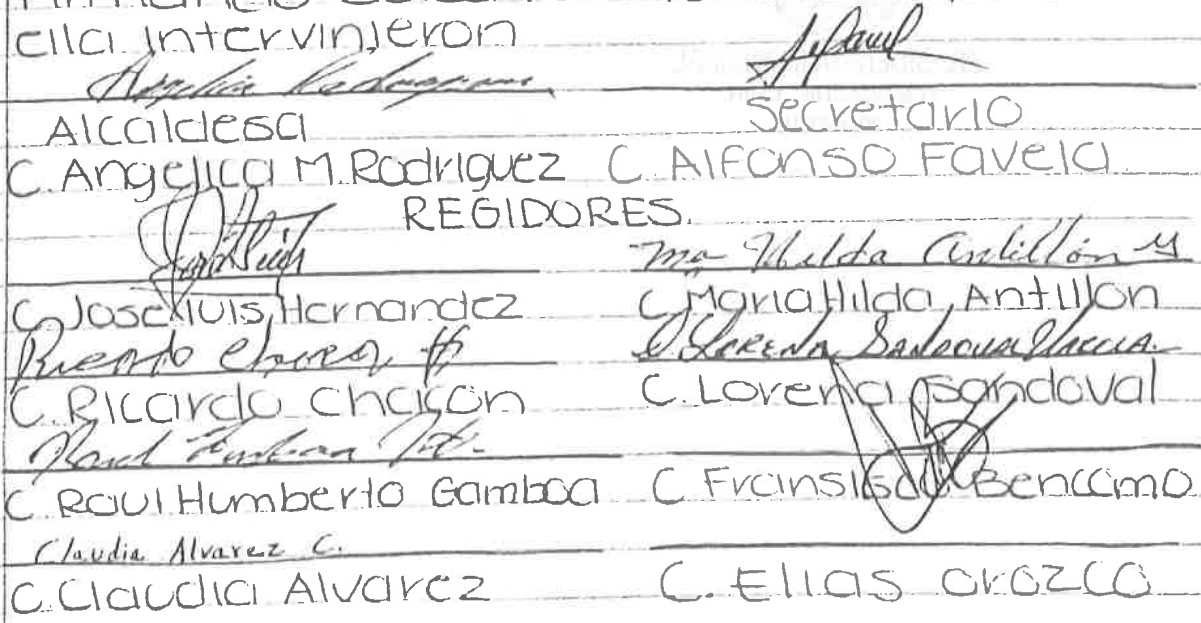 ella intervinieron
Alcaldesa Secretario
C. Angelica M. Rodriguez C. Alfonso Favela
REGIDORES.
Ma Hilda Antillón
C. Jose luis Hernandez C. Maria Hilda Antillon
Lorena Sandoval
C. Ricardo chacon C. Lorena Sandoval
C. Raul Humberto Gamboa C. Fransisco Bencomo
Claudia Alvarez C.
C. Claudia Alvarez C. Elias orozco